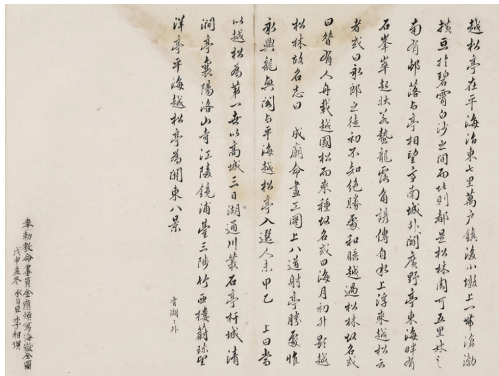 越松亭在平海治東七里萬戶鎭後小墩上一帶滄渤
橫亘於碧霄白沙之間而北則都是松林周可五里林之
南有邨落与亭相望亭南城外闊廣野亭東海畔有
石峯崒起狀若蟄龍露角諺傳自水上浮來越松云
者或曰永郎之徒初不知絶勝處和睡越過松林故名或
曰昔有人舟載越國松而來種故名或曰海月初升影越
松林故名志曰 成廟命畫工圖上八道射亭勝處惟
永興龍興閣与平海越松亭入選人未甲乙 上曰當
以越松爲第一云以高城三日湖通川叢石亭杆城淸
澗亭襄陽洛山寺江陵鏡浦臺三陟竹西樓蔚珎望
洋亭平海越松亭爲關東八景
 者湖以外
奉勅敎命畫員金 順寫海嶽全圖
戊申孟冬承旨臣李相憤